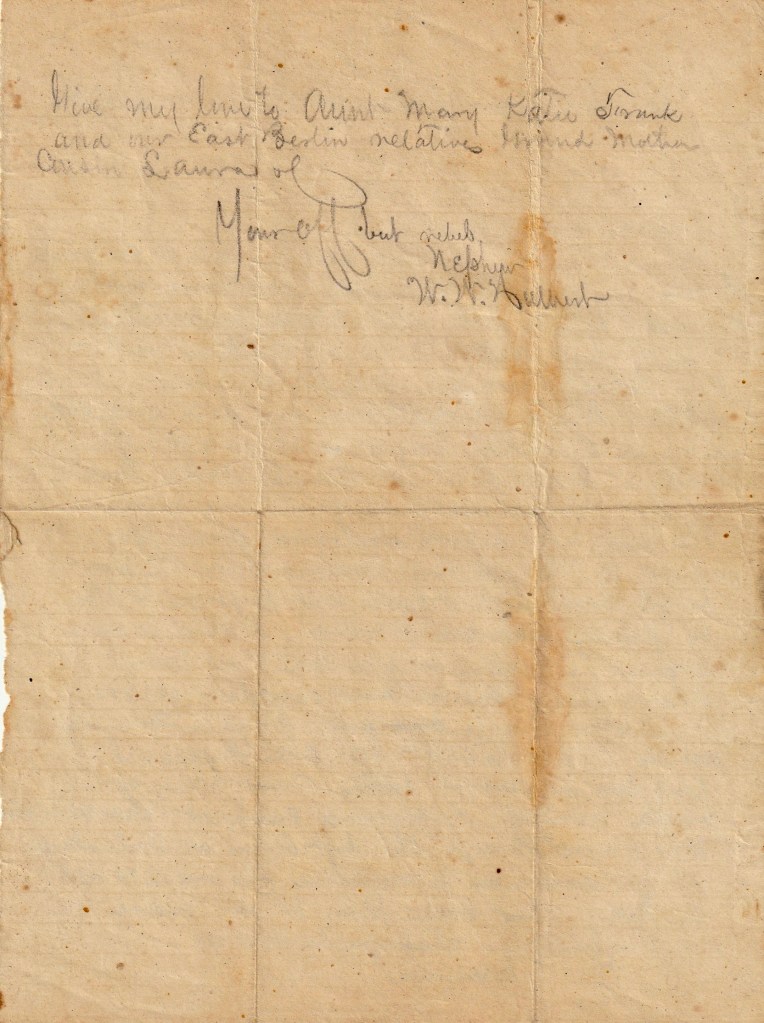 Give my love to Aunt Mary Katie Frank
and our East Berlin relatives Grand Mother
Cousin Laura
Your aff but rebel
Nephew
W. W. Hulbert